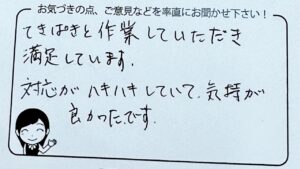 お気づきの点、ご意見などを率直にお聞かせ下さい！
てきぱきと作業していただき
満足しています。
対応がハキハキしていて、気持が
良かったです.